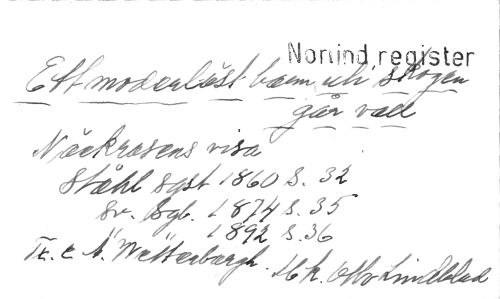 Norind register
Ett moderlöst barn uti skogen
går vall
Näckrosens visa
Ståhl sgst 1860 s. 32
sv. sgb. 1874 s. 35
1892 s. 36
Tr. e A. Wetterbergh. M k. Otto Lindblad